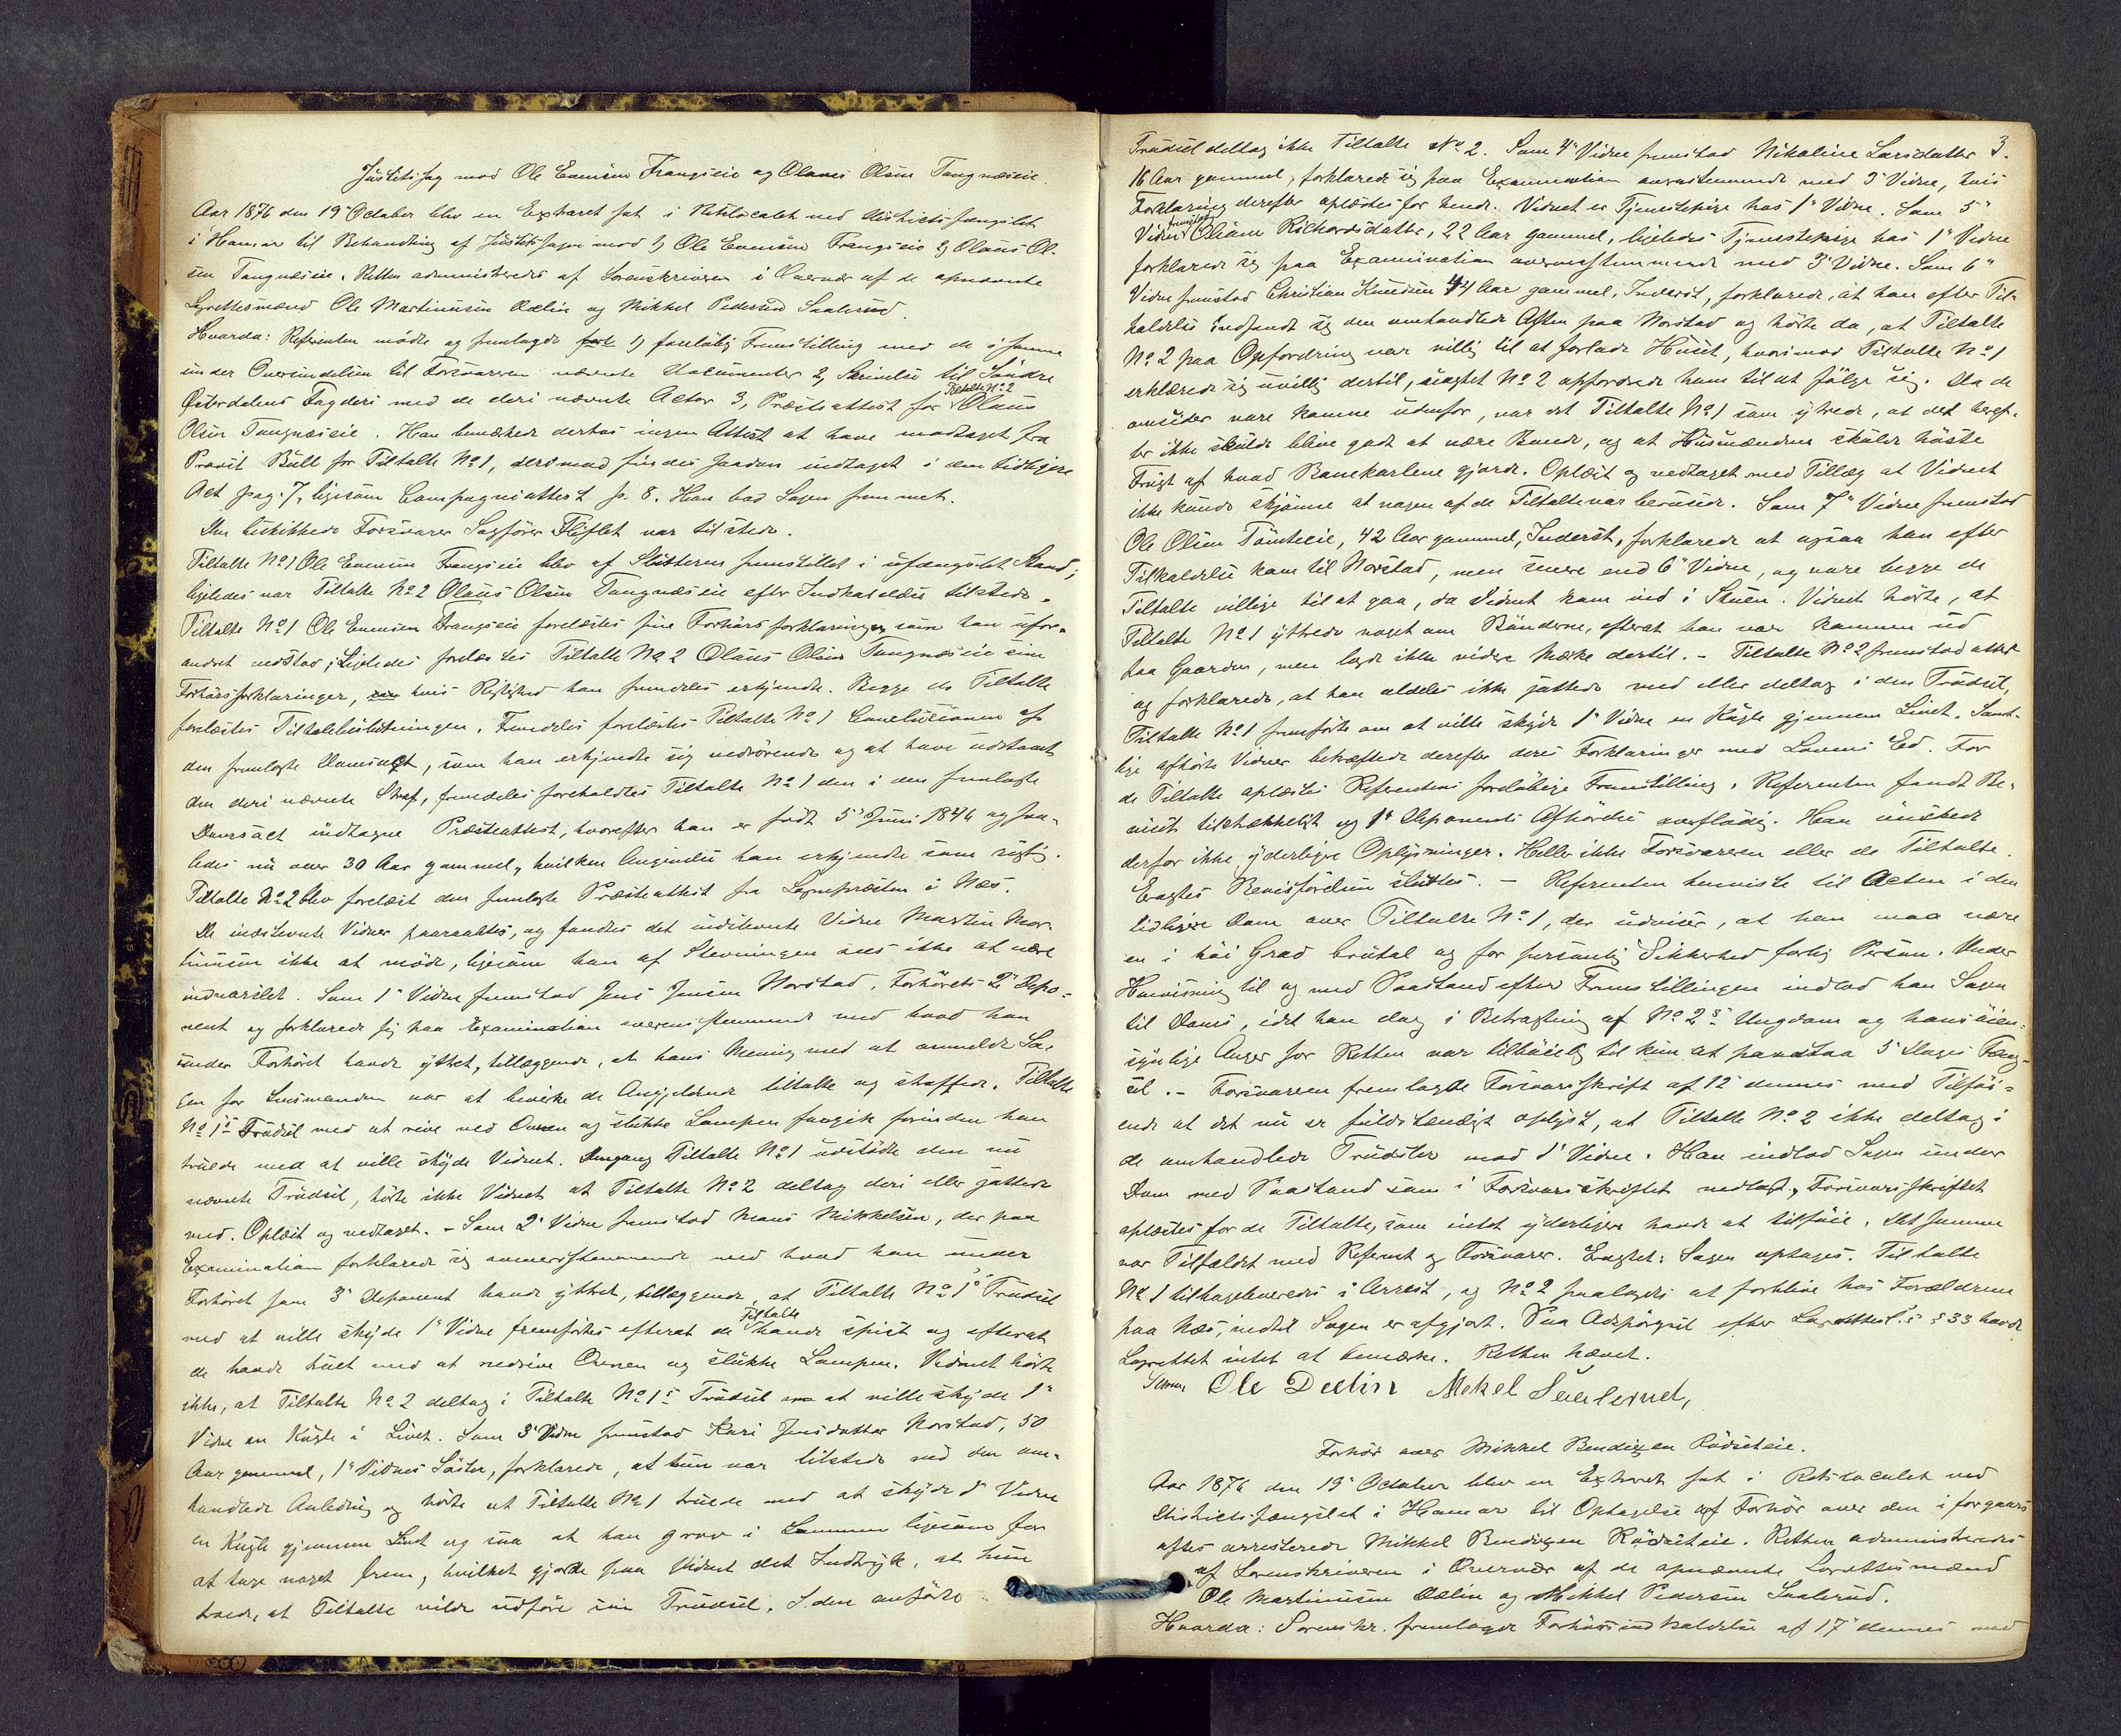 Justitssag mod Ole Evensen Frangseie og Olaus Olsen Tangnæseie.
Aar 1876 den 19 October blev en Extraret sat i Retslocalet ved Districtsfængslet
i Hamar til Behandling af Justitssagen mod 1) Ole Evensen Frangseie 2) Olaus Ol-
sen Tangnæseie. Retten administreredes af Sorenskriveren i Overvær af de opnævnte
Lagrettesmænd Ole Martinusen Dælin og Mikkel Pedersen Saalerud.
Hvorda: Referenten mødte og fremlagde 1) foreløbig Fremstilling med de i samme
under Oversendelsen til Forsvareren nævnte Documenter 2, Skrivelse til Søndre
Østerdalens Fogderi med de deri nævnte Acter 3, Præsteattest for Tiltalte No 2 Olaus
Olsen Tangnæseie. Han bemærkede derhos ingen Attest at have modtaget fra
Provst Bull for Tiltalte No 1, derimod findes saadan indtaget i den tidligere
Act pag. 7, ligesom Compagniattest p. 8. Han bad Sagen fremmet.
Den beskikkede Forsvarer Sagfører Fliflet var tilstede.
Tiltalte No 1 Ole Evensen Frangseie blev af Slutteren fremstillet i ufængslet Stand;
ligeledes var Tiltalte No 2 Olaus Olsen Tangnæseie efter Indkaldelse tilstede.
Tiltalte No 1 Ole Evensen Frangseie forelæstes sine Forhørsforklaringer som han ufor-
andret vedstod; Ligeledes forelæstes Tiltalte No 2 Olaus Olsen Tangnæseie sine
Forhørsforklaringer, hvis Rigtighed han fremdeles erkjendte. Begge de Tiltalte
forelæstes Tiltalebeslutningen. Fremdeles forelæstes Tiltalte No 1 Conclusionen af
den fremlagte Domsact, som han erkjendte sig vedrørende og at have udstaaet
den deri nævnte Straf, fremdeles foreholdtes Tiltalte No 1 den i den fremlagte
Domsact indtagne Præsteattest, hvorefter han er født 5 Juni 1846 og saa-
ledes nu over 30 Aar gammel, hvilken Angivelse han erkjendte som rigtig.
Tiltalte No 2 blev forelæst den fremlagte Præsteattest fra Sognepræsten i Næs.
De indstevnte Vidner paaraabtes, og fandtes det indstevnte Vidne Martin Mar-
tinusen ikke at møde, ligesom han af Stevningen sees ikke at være
indvarslet. Som 1' Vidne fremstod Jens Jensen Norstad, Forhørets 2' Depo-
nent og forklarede sig paa Examination overensstemmende med hvad han
under Forhøret havde yttret, tillæggende, at hans Mening med at anmelde Sa-
gen for Lensmanden var at bevirke de Angjeldende tiltalte og straffede. Tiltalte
No 1s Trudsel med at rive ned Ovnen og slukke Lampen foregik forinden han
truede med at ville skyde Vidnet. Dengang Tiltalte No 1 udstødte den nu
nævnte Trudsel, hørte ikke Vidnet at Tiltalte No 2 deltog deri eller jattede
med. Oplæst og vedtaget. - Som 2' Vidne fremstod Mons Mikkelsen, der paa
Examination forklarede sig overensstemmende med hvad han under
Forhøret som 3' Deponent havde yttret, tillæggende, at Tiltalte No 1s Trudsel
med at ville skyde 1' Vidne fremførtes efterat de Tiltalte havde spist og efterat
de havde truet med at nedrive Ovnen og slukke Lampen. Vidnet hørte
ikke, at Tiltalte No 2 deltog i Tiltalte No 1s Trudsel om at ville skyde 1'
Vidne en Kugle i Livet. Som 3' Vidne fremstod Kari Jensdatter Norstad, 50
Aar gammel, 1' Vidnes Søster, forklarede, at hun var tilstede ved den om-
handlede Anledning og hørte at Tiltalte No 1 truede med at skyde 1' Vidne
en Kugle gjennem Livet og saa at han grov i Lommen ligesom for
at tage noget frem, hvilket gjorde paa Vidnet det Indtryk, at hun
troede, at Tiltalte vilde udføre sin Trudsel. I den anførte
3.
Trudsel deltog ikke Tiltalte No 2. Som 4' Vidne fremstod Nikoline Larsdatter
16 Aar gammel, forklarede sig paa Examination overenstemmende med 3' Vidne, hvis
Forklaring derefter oplæstes for hende. Vidnet er Tjenestepige hos 1' Vidne. Som 5'
Vidne fremstod Oliane Richardsdatter, 22 Aar gammel, ligeledes Tjenestepige hos 1' Vidne
forklarede sig paa Examination overensstemmende med 3' Vidne. Som 6'
Vidne fremstod Christian Knudsen 44 Aar gammel, Inderst, forklarede, at han efter Til-
kaldelse indfandt sig den omhandlede Aften paa Norstad og hørte da, at Tiltalte
No 2 paa Opfordring var villig til at forlade Huset, hvorimod Tiltalte No 1
erklærede sig uvillig dertil, uagtet No 2 opfordrede ham til at følge sig. Da de
omsider vare komne udenfor, var det Tiltalte No 1 som ytrede, at det heref-
ter ikke skulde blive godt at være Bonde, og at Husmændene skulde høste
Frugt af hvad Banekarlene gjorde. Oplæst og vedtaget med Tillæg at Vidnet
ikke kunde skjønne at nogen af de Tiltalte var beruset. Som 7' Vidne fremstod
Ole Olsen Tomteeie, 42 Aar gammel, Inderst, forklarede at ogsaa han efter
Tilkaldelse kom til Norstad, men senere end 6' Vidne, og vare begge de
Tiltalte villige til at gaa, da Vidnet kom ind i Stuen. Vidnet hørte, at
Tiltalte No 1 yttrede noget om Bønderne, efterat han var kommen ud
paa Gaarden, men lagde ikke videre Mærke dertil. - Tiltalte No 2 fremstod atter
og forklarede, at han aldeles ikke jattede med eller deltog i den Trudsel,
Tiltalte No 1 fremførte om at ville skyde 1' Vidne en Kugle gjennem Livet. Samt-
lige afhørte Vidner bekræftede derefter deres Forklaringer med Lovens Ed. For
de Tiltalte oplæstes Referentens foreløbige Fremstilling. Referenten fandt Be-
viset tilstrækkeligt og 1' Deponents Afhørelse overflødig. Han ønskede
derfor ikke yderligere Oplysninger. Heller ikke Forsvareren eller de Tiltalte.
Eragtes Bevisførelsen sluttes. - Referenten henviste til Acten i den
tidligere Dom over Tiltalte No 1, der udviser, at han maa være
en i høi Grad brutal og for personlig Sikkerhed farlig Person. Under
Henvisning til og med Paastand efter Fremstillingen indlod han Sagen
til Doms, idet han dog i Betragtning af No 2s Ungdom og hans øien-
synlige Anger for Retten var tilbøielig til kun at paastaa 5 Dages Fæng-
sel. - Forsvareren fremlagde Forsvarsskrift af 12 dennes med Tilføi-
ende at det nu er fuldstændigt oplyst, at Tiltalte No 2 ikke deltog i
de omhandlede Trudsler mod 1' Vidne. Han indlod Sagen under
Dom med Paastand som i Forsvarsskriftet nedlagt. Forsvarsskriftet
oplæstes for de Tiltalte, som intet yderligere havde at tilføie. Det samme
var Tilfældet med Referent og Forsvarer. Eragtet: Sagen optages. Tiltalte
No 1 tilbageleveredes i Arrest, og No 2 paalagdes at forblive hos Forældrene
paa Næs, indtil Sagen er afgjort. Paa Adspørgsel efter Lagrettesl.s § 33 havde
Lagrettet intet at bemærke. Retten hævet.
Ole Deelin Mekel Saalerud,
Forhør over Mikkel Bendixen Rudseteie.
Aar 1876 den 19' October blev en Extraret sat i Retslocalet ved
Districtsfængslet i Hamar til Optagelse af Forhør over den i forgaars
aftes arresterede Mikkel Bendixen Rudseteie. Retten administreredes
af Sorenskriveren i Overvær af de opnævnte Lagrettesmænd
Ole Martinusen Dælin og Mikkel Pedersen Saalerud.
Hvorda: Sorenskr. fremlagde Forhørsindkaldelse af 17' dennes med